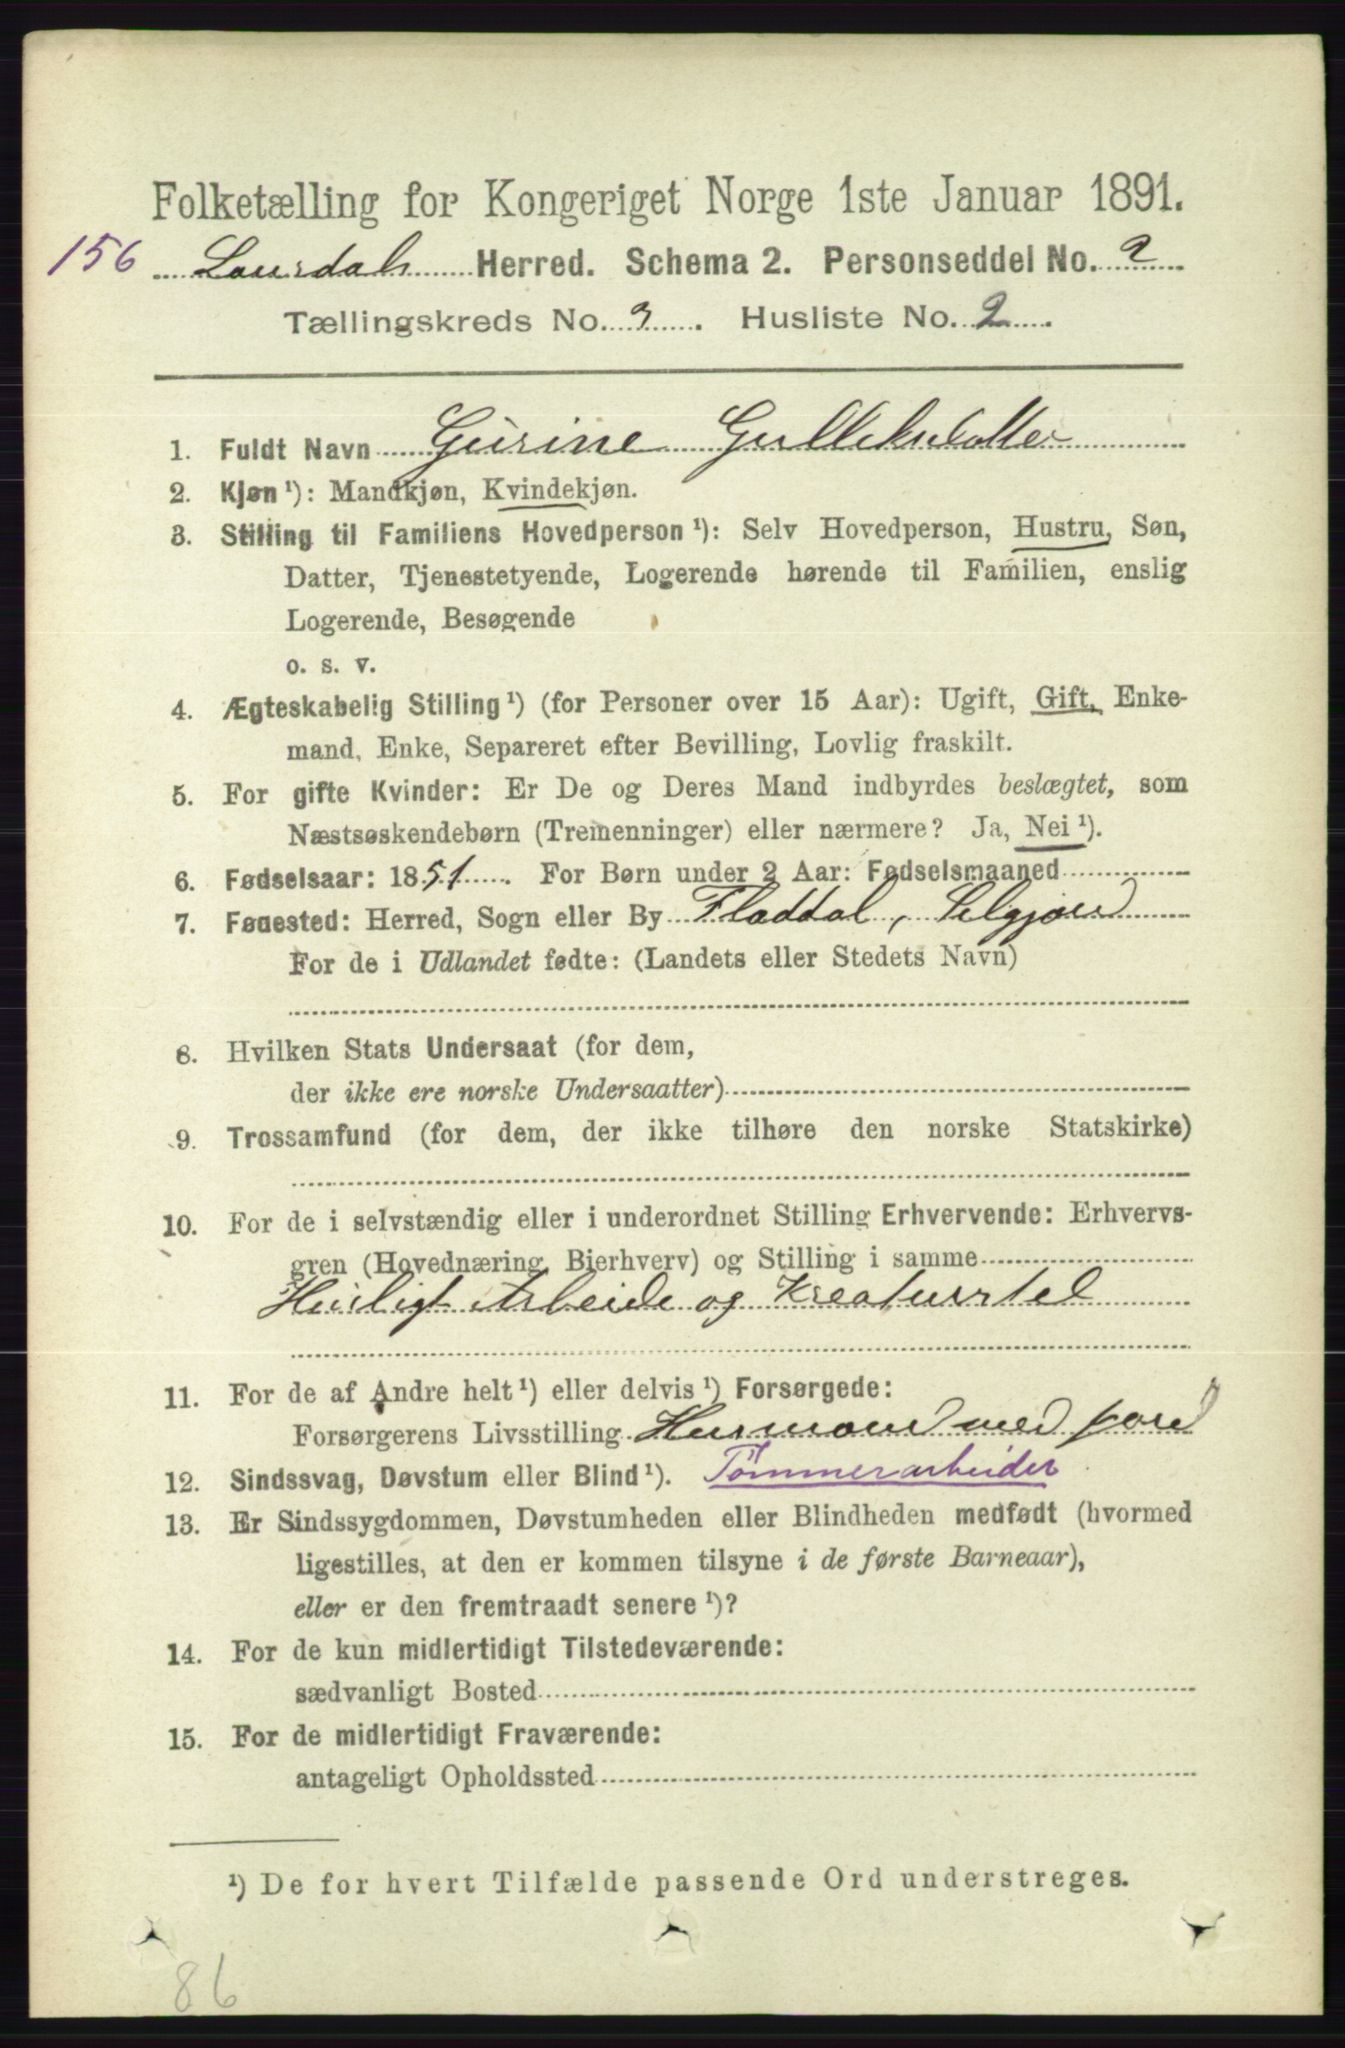 Folketælling for Kongeriget Norge 1ste Januar 1891.
156 Laurdal Herred. Schema 2. Personseddel No. 2
Tællingskreds No. 3. Husliste No. 2.
1. Fuldt Navn Gurine Gulleksdatter
2. Kjøn¹): Mandkjøn, Kvindekjøn.
3. Stilling til Familiens Hovedperson¹): Selv Hovedperson, Hustru, Søn,
Datter, Tjenestetyende, Logerende hørende til Familien, enslig
Logerende, Besøgende
o. s. v.
4. Ægteskabelig Stilling¹) (for Personer over 15 Aar): Ugift, Gift, Enke-
mand, Enke, Separeret efter Bevilling, Lovlig fraskilt.
5. For gifte Kvinder: Er De og Deres Mand indbyrdes beslægtet, som
Næstsøskendebørn (Tremenninger) eller nærmere? Ja, Nei¹).
6. Fødselsaar: 1851. For Børn under 2 Aar: Fødselsmaaned
7. Fødested: Herred, Sogn eller By Fladdal, Selgjord
For de i Udlandet fødte: (Landets eller Stedets Navn)
8. Hvilken Stats Undersaat (for dem,
der ikke ere norske Undersaatter)
9. Trossamfund (for dem, der ikke tilhøre den norske Statskirke)
10. For de i selvstændig eller i underordnet Stilling Erhvervende: Erhvervs-
gren (Hovednæring, Bierhverv) og Stilling i samme
Huusligt Arbeide og Kreaturstel
11. For de af Andre helt¹) eller delvis¹) Forsørgede:
Forsørgerens Livsstilling Husmand med jord
12. Sindssvag, Døvstum eller Blind¹). Tømmerarbeider
13. Er Sindssygdommen, Døvstumheden eller Blindheden medfødt (hvormed
ligestilles, at den er kommen tilsyne i de første Barneaar),
eller er den fremtraadt senere¹)?
14. For de kun midlertidigt Tilstedeværende:
sædvanligt Bosted
15. For de midlertidigt Fraværende:
antageligt Opholdssted
¹) De for hvert Tilfælde passende Ord understreges.
86